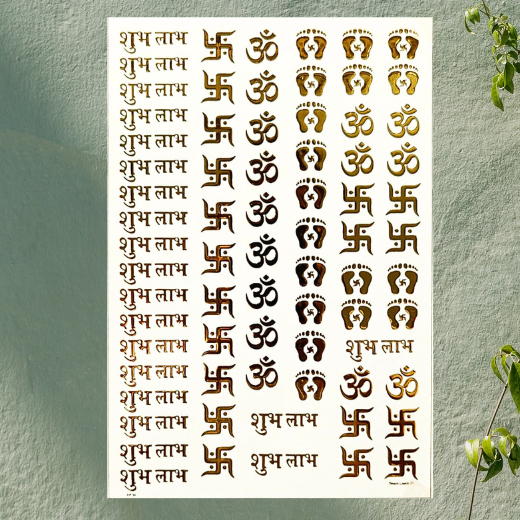 शुभ लाभ
शुभ लाभ
शुभ लाभ
शुभ लाभ
शुभ लाभ
शुभ लाभ
शुभ लाभ
शुभ लाभ
शुभ लाभ
शुभ लाभ
शुभ लाभ
शुभ लाभ
शुभ लाभ
शुभ लाभ
शुभ लाभ
शुभ लाभ
शुभ लाभ
शुभ लाभ
ॐ
ॐ
ॐ
ॐ
ॐ
ॐ
ॐ
ॐ
ॐ
शुभ लाभ
शुभ लाभ
ॐ ॐ
ॐ ॐ
शुभ लाभ
ॐ ॐ